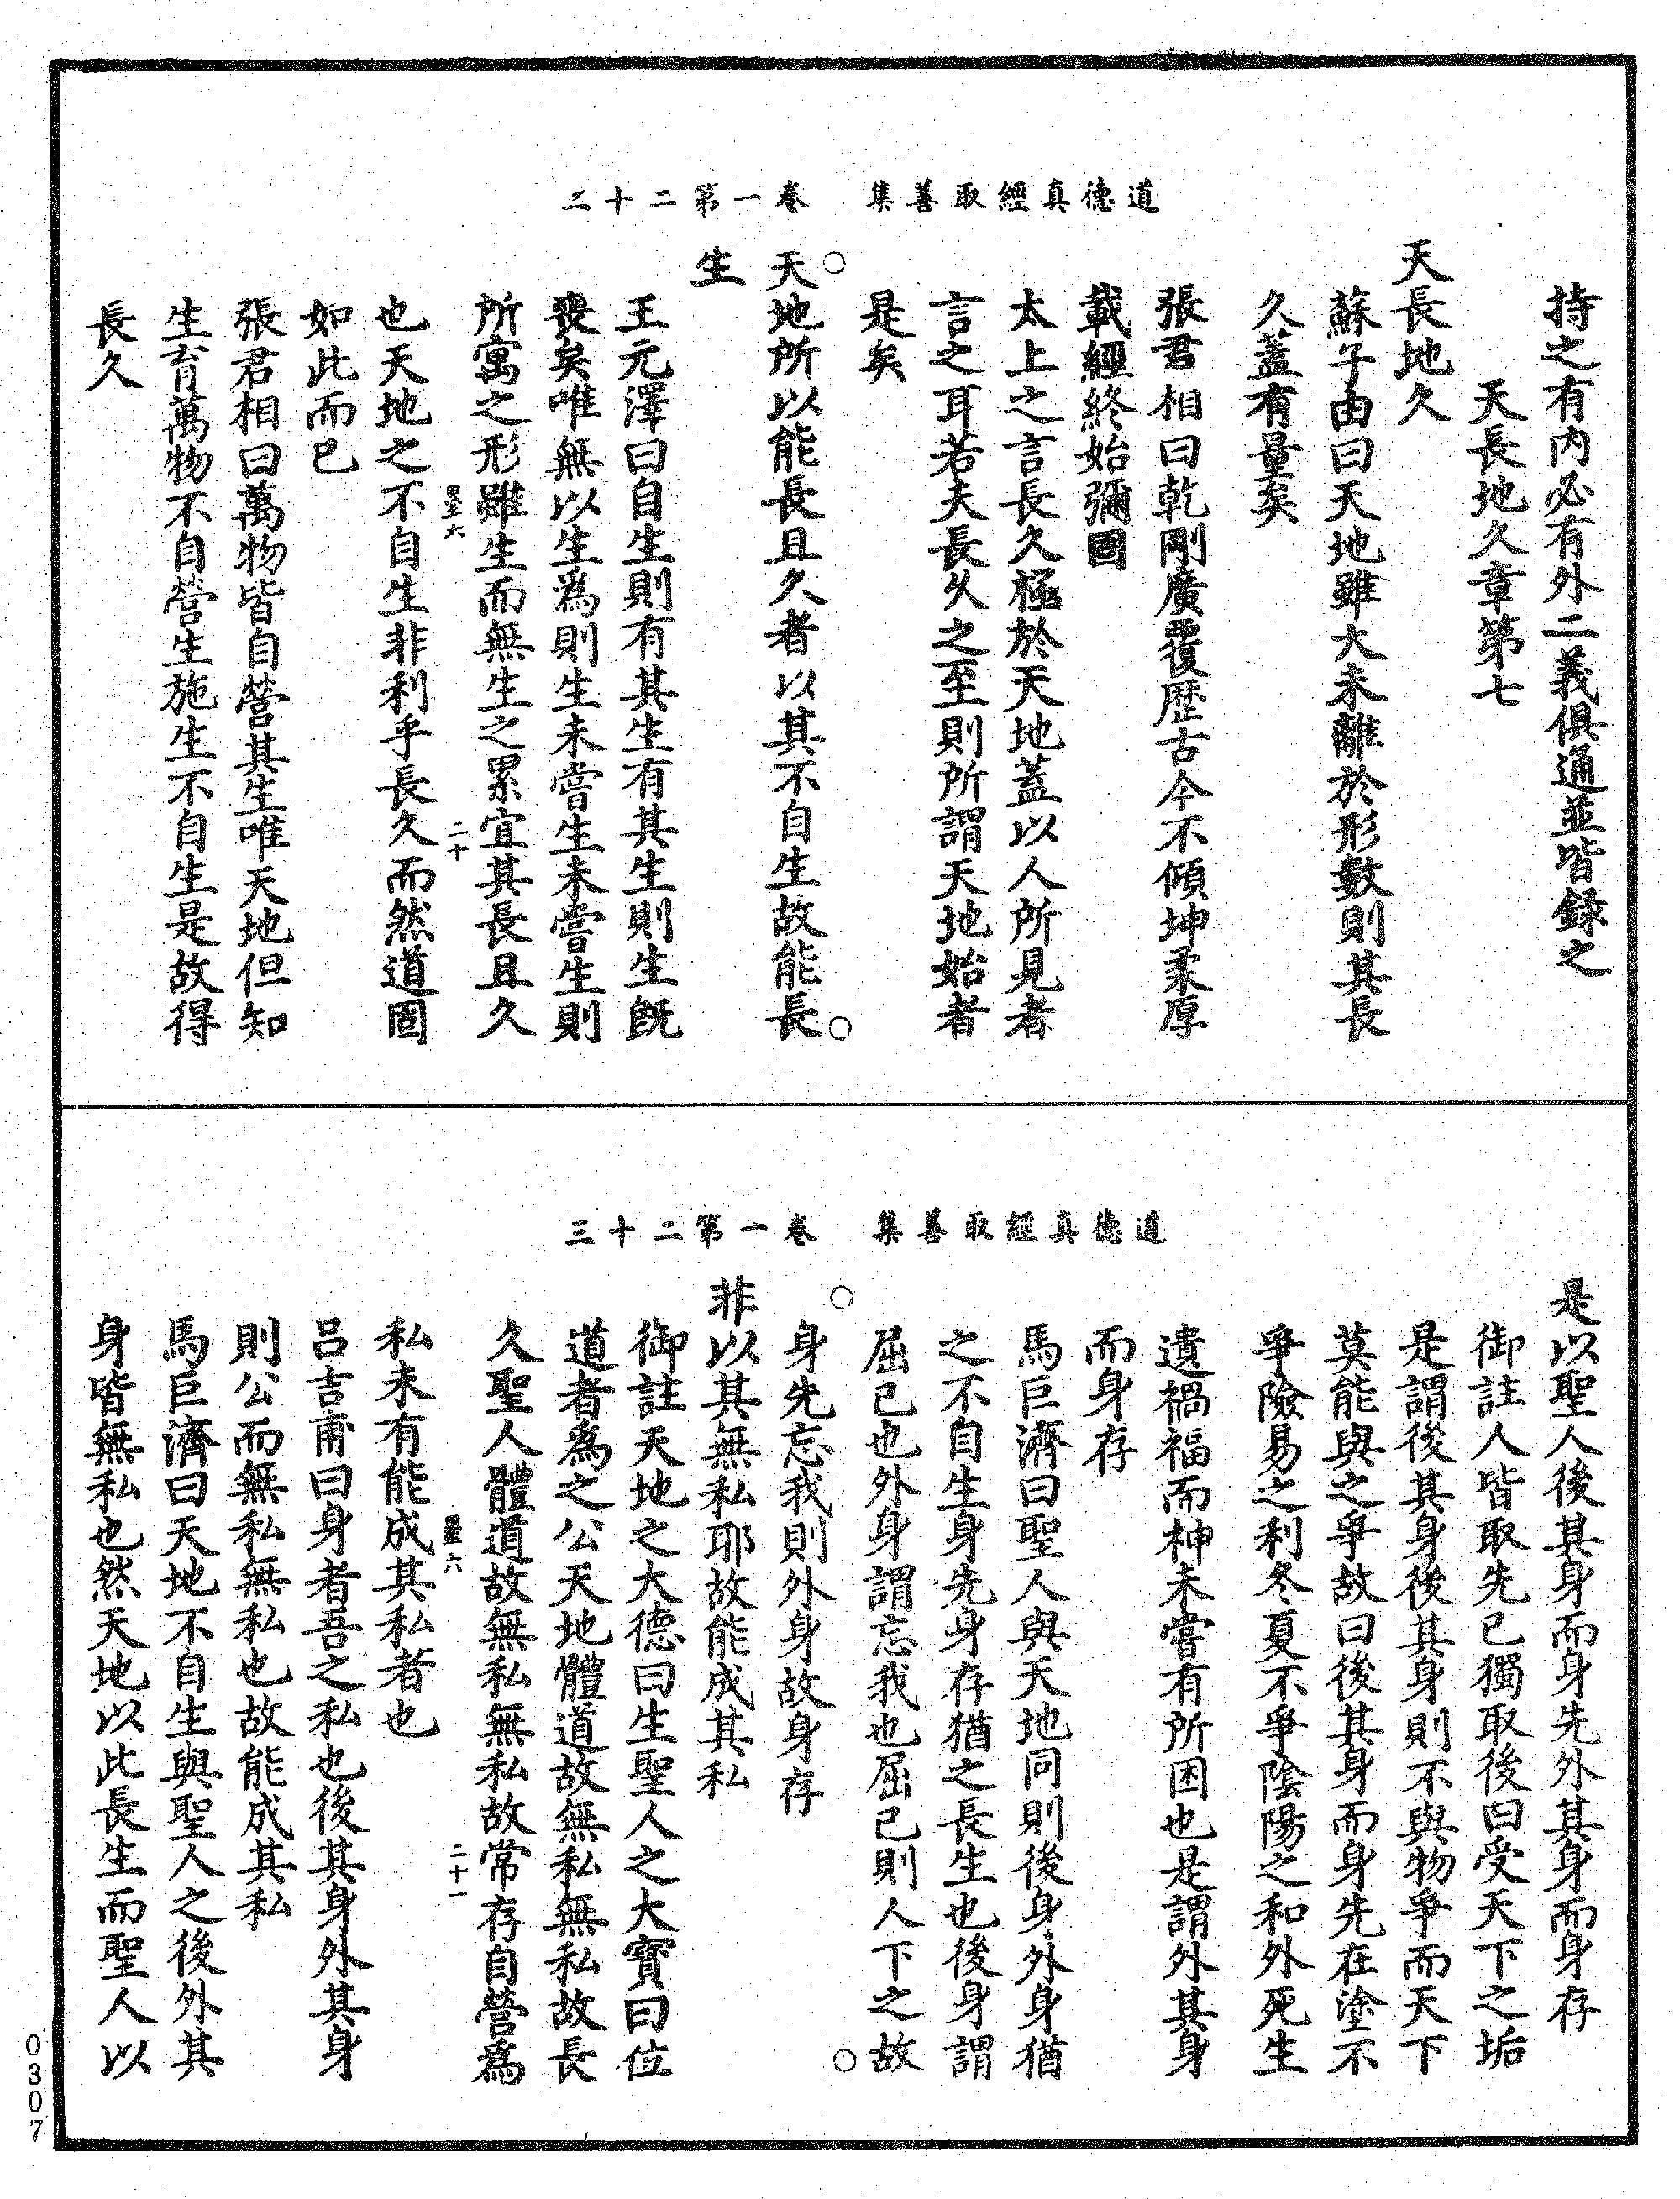 道德真經取善集　卷一第二十二
持之有內必有外二義俱通並皆錄之
天長地久章第七
天長地久
蘇子由曰天地雖大未離於形數則其長
久蓋有量矣
張君相曰乾剛廣覆歷古今不傾坤柔厚
載經終始彌固
太上之言長久極於天地蓋以人所見者
言之耳若夫長久之至則所謂天地始者
是矣
天地所以能長且久者以其不自生故能長
生
王元澤曰自生則有其生有其生則生既
喪矣唯無以生為則生未嘗生未嘗生則
所寓之形雖生而無生之累宜其長且久
二十
也天地之不自生非利乎長久而然道固
如此而已
張君相曰萬物皆自營其生唯天地但知
生育萬物不自營生施生不自生是故得
長久
道德真經取善集　卷一第二十三
是以聖人後其身而身先外其身而身存
御註人皆取先已獨取後曰受天下之垢
是謂後其身後其身則不與物爭而天下
莫能與之爭故曰後其身而身先在塗不
爭險易之利冬夏不爭陰陽之和外死生
遺禍福而神未嘗有所困也是謂外其身
而身存
馬巨濟曰聖人與天地同則後身外身猶
之不自生身先身存猶之長生也後身謂
屈已也外身謂忘我也屈已則人下之故
身先忘我則外身故身存
非以其無私耶故能成其私
御註天地之大德曰生聖人之大寶曰位
道者為之公天地體道故無私無私故長
久聖人體道故無私無私故常存自營為
二十一
私未有能成其私者也
呂吉甫曰身者吾之私也後其身外其身
則公而無私無私也故能成其私
馬巨濟曰天地不自生與聖人之後外其
身皆無私也然天地以此長生而聖人以
0307